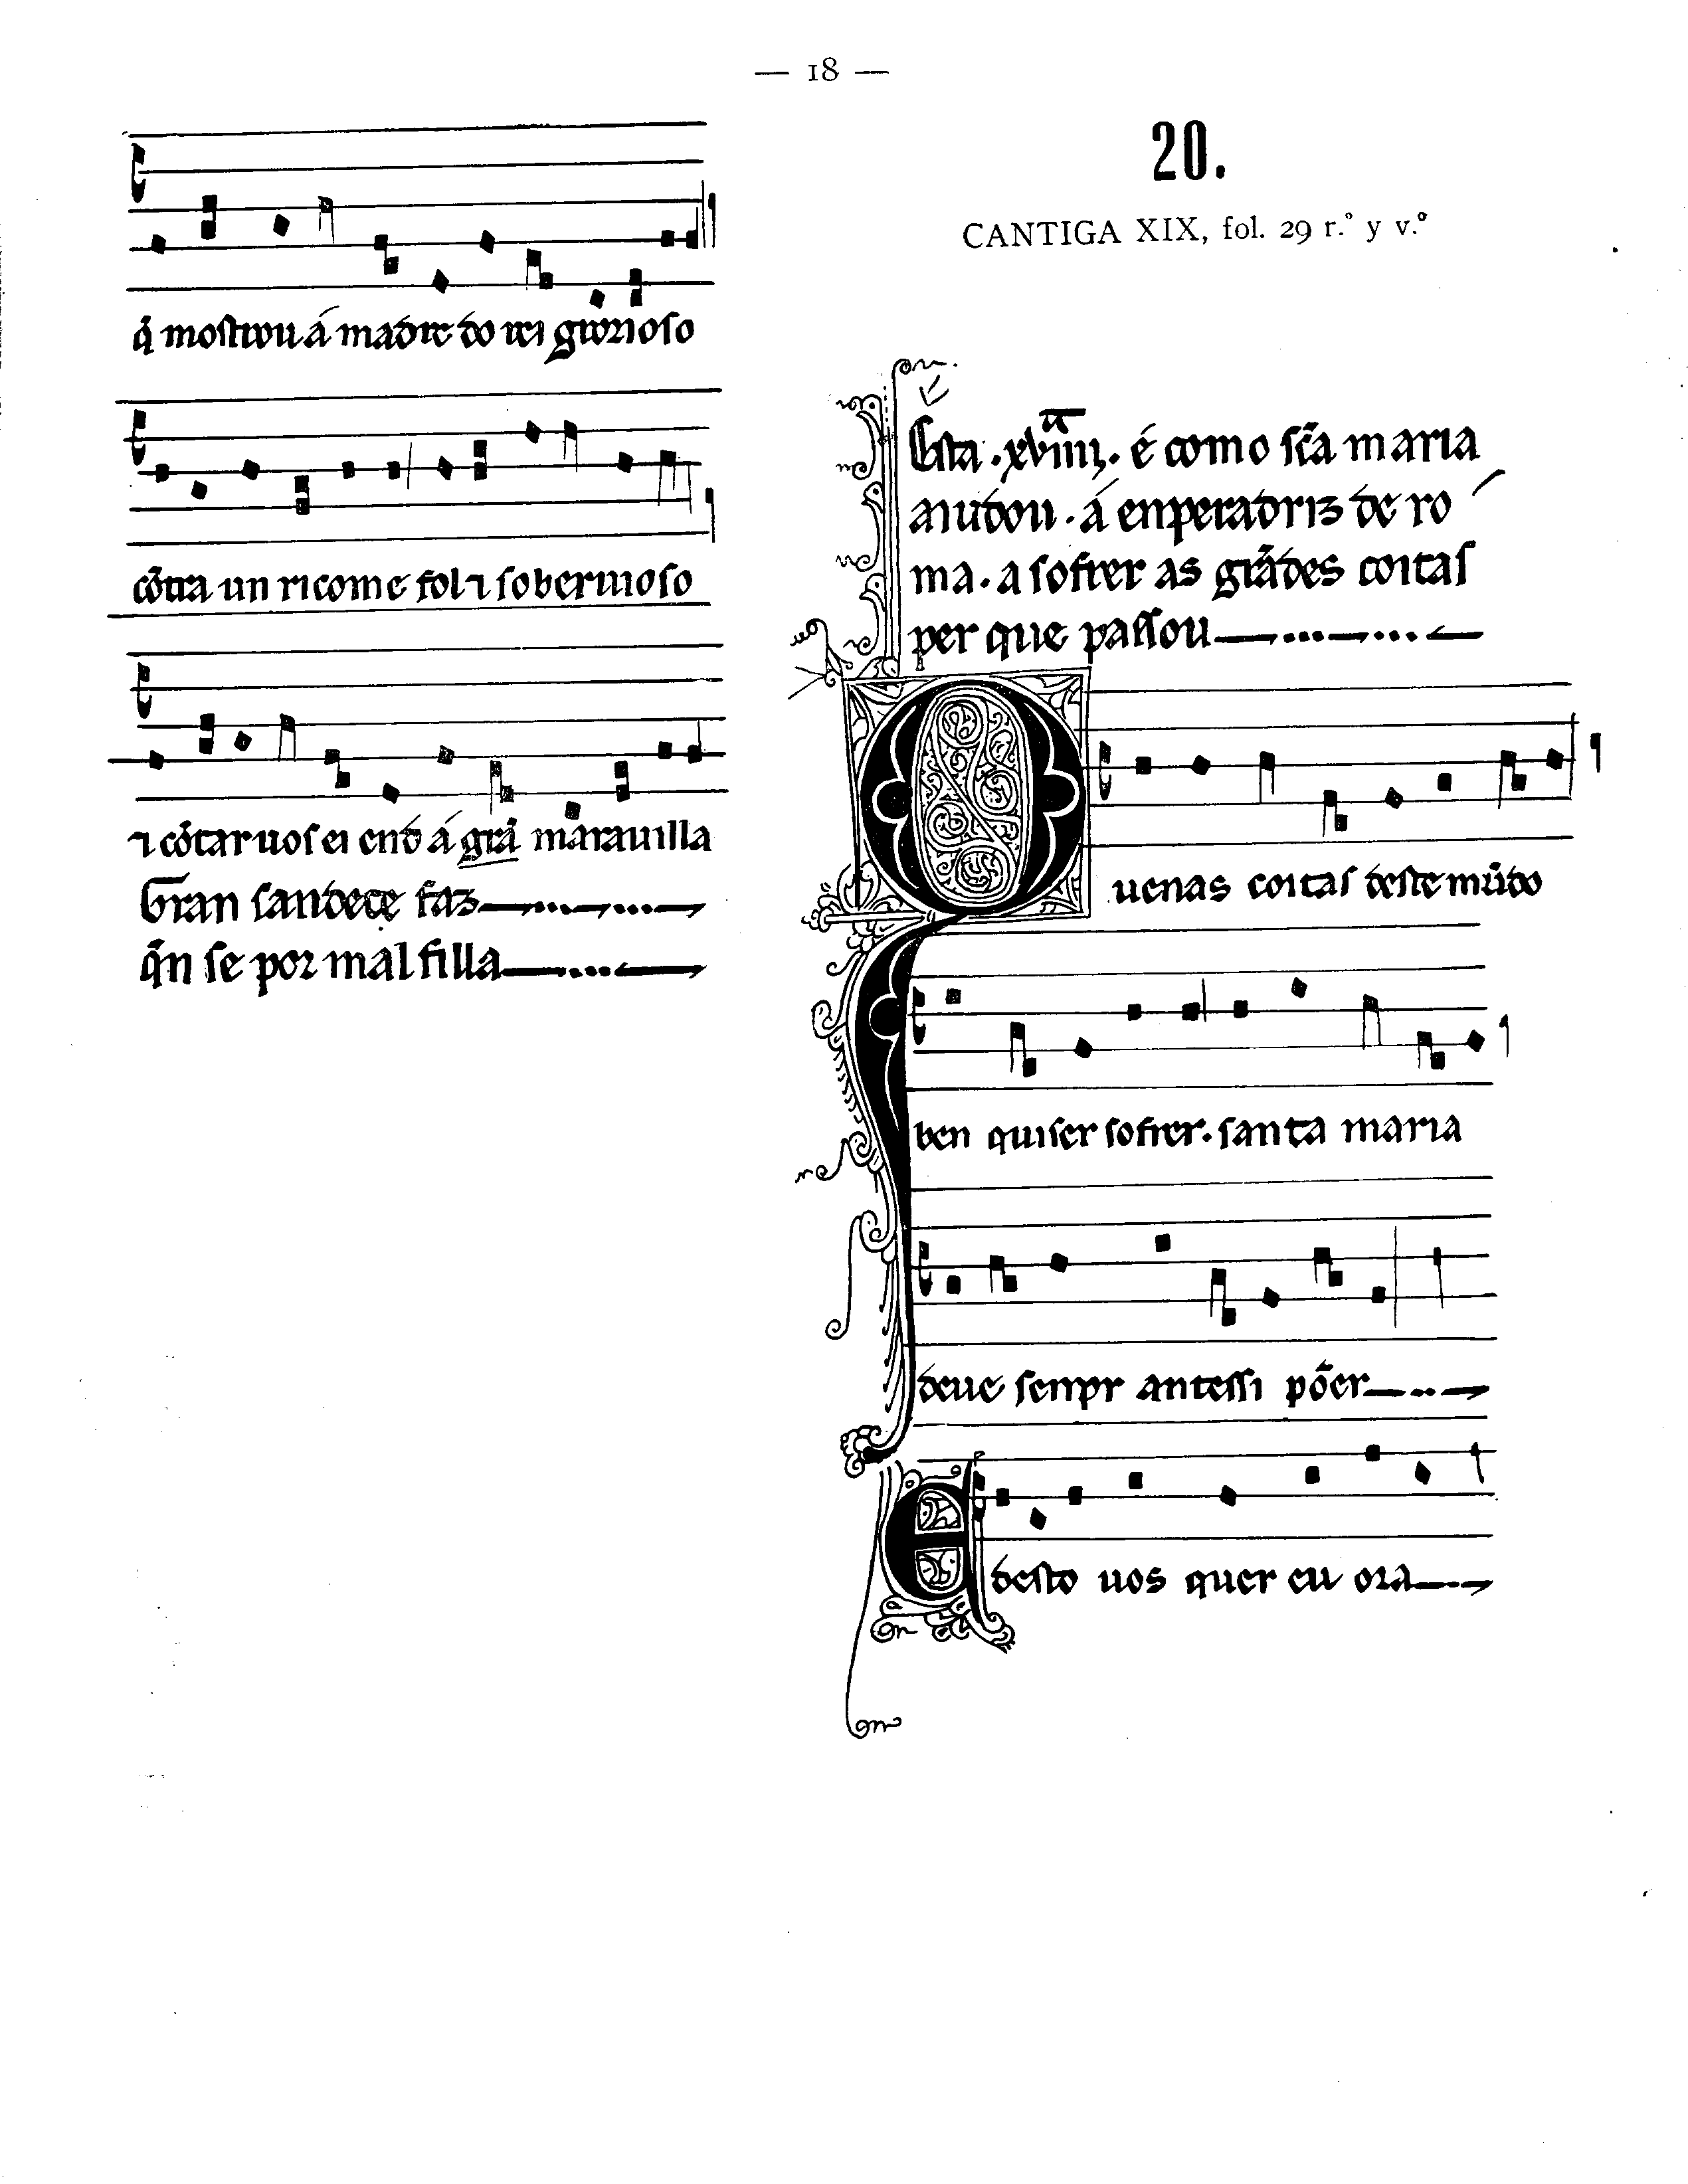 — 18 —
q̃ mostrou á madre do rei glorioso
cõtra un ricome fol ⁊ soberuioso
⁊ cõtaruos ei end á grã marauilla
Gran sandeçe faz
q̃n se por mal filla
20.
CANTIGA XIX, fol. 29 r.º y v.º
Esta .xviiii. é como sc̃a maria
aiudou . á enperadriz de ro
ma . a sofrer as grãdes coitas
per que passou
Quenas coitas deste mũdo
ben quiser sofrer . santa maria
deue senpr antessi põer
E desto uos quer eu ora